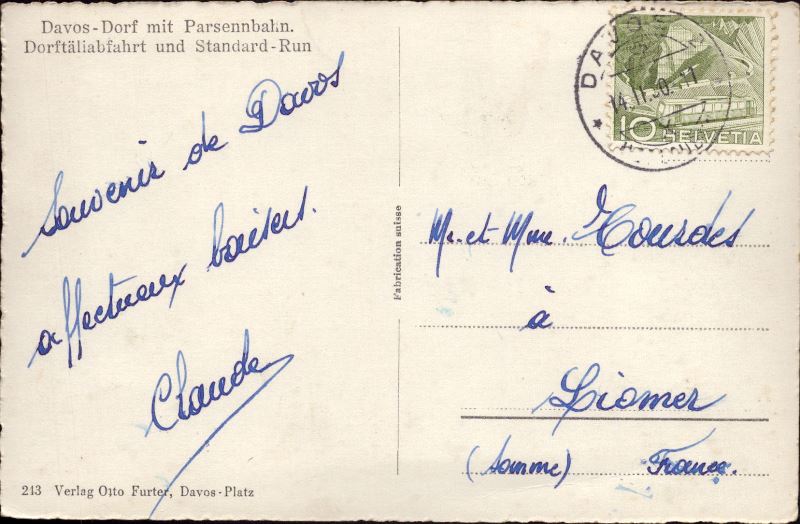 Davos-Dorf mit Parsennbahn.
Dorftäliabfahrt und Standard-Run
Souvenir de Davos
affectueux baisers.
Claude
213 Verlag Otto Furter, Davos-Platz
Fabrication suisse
DAVOS
14.II.50.-17
10 HELVETIA
Mr. et Mme. Tourdes
à
Liomer
(Somme) France.